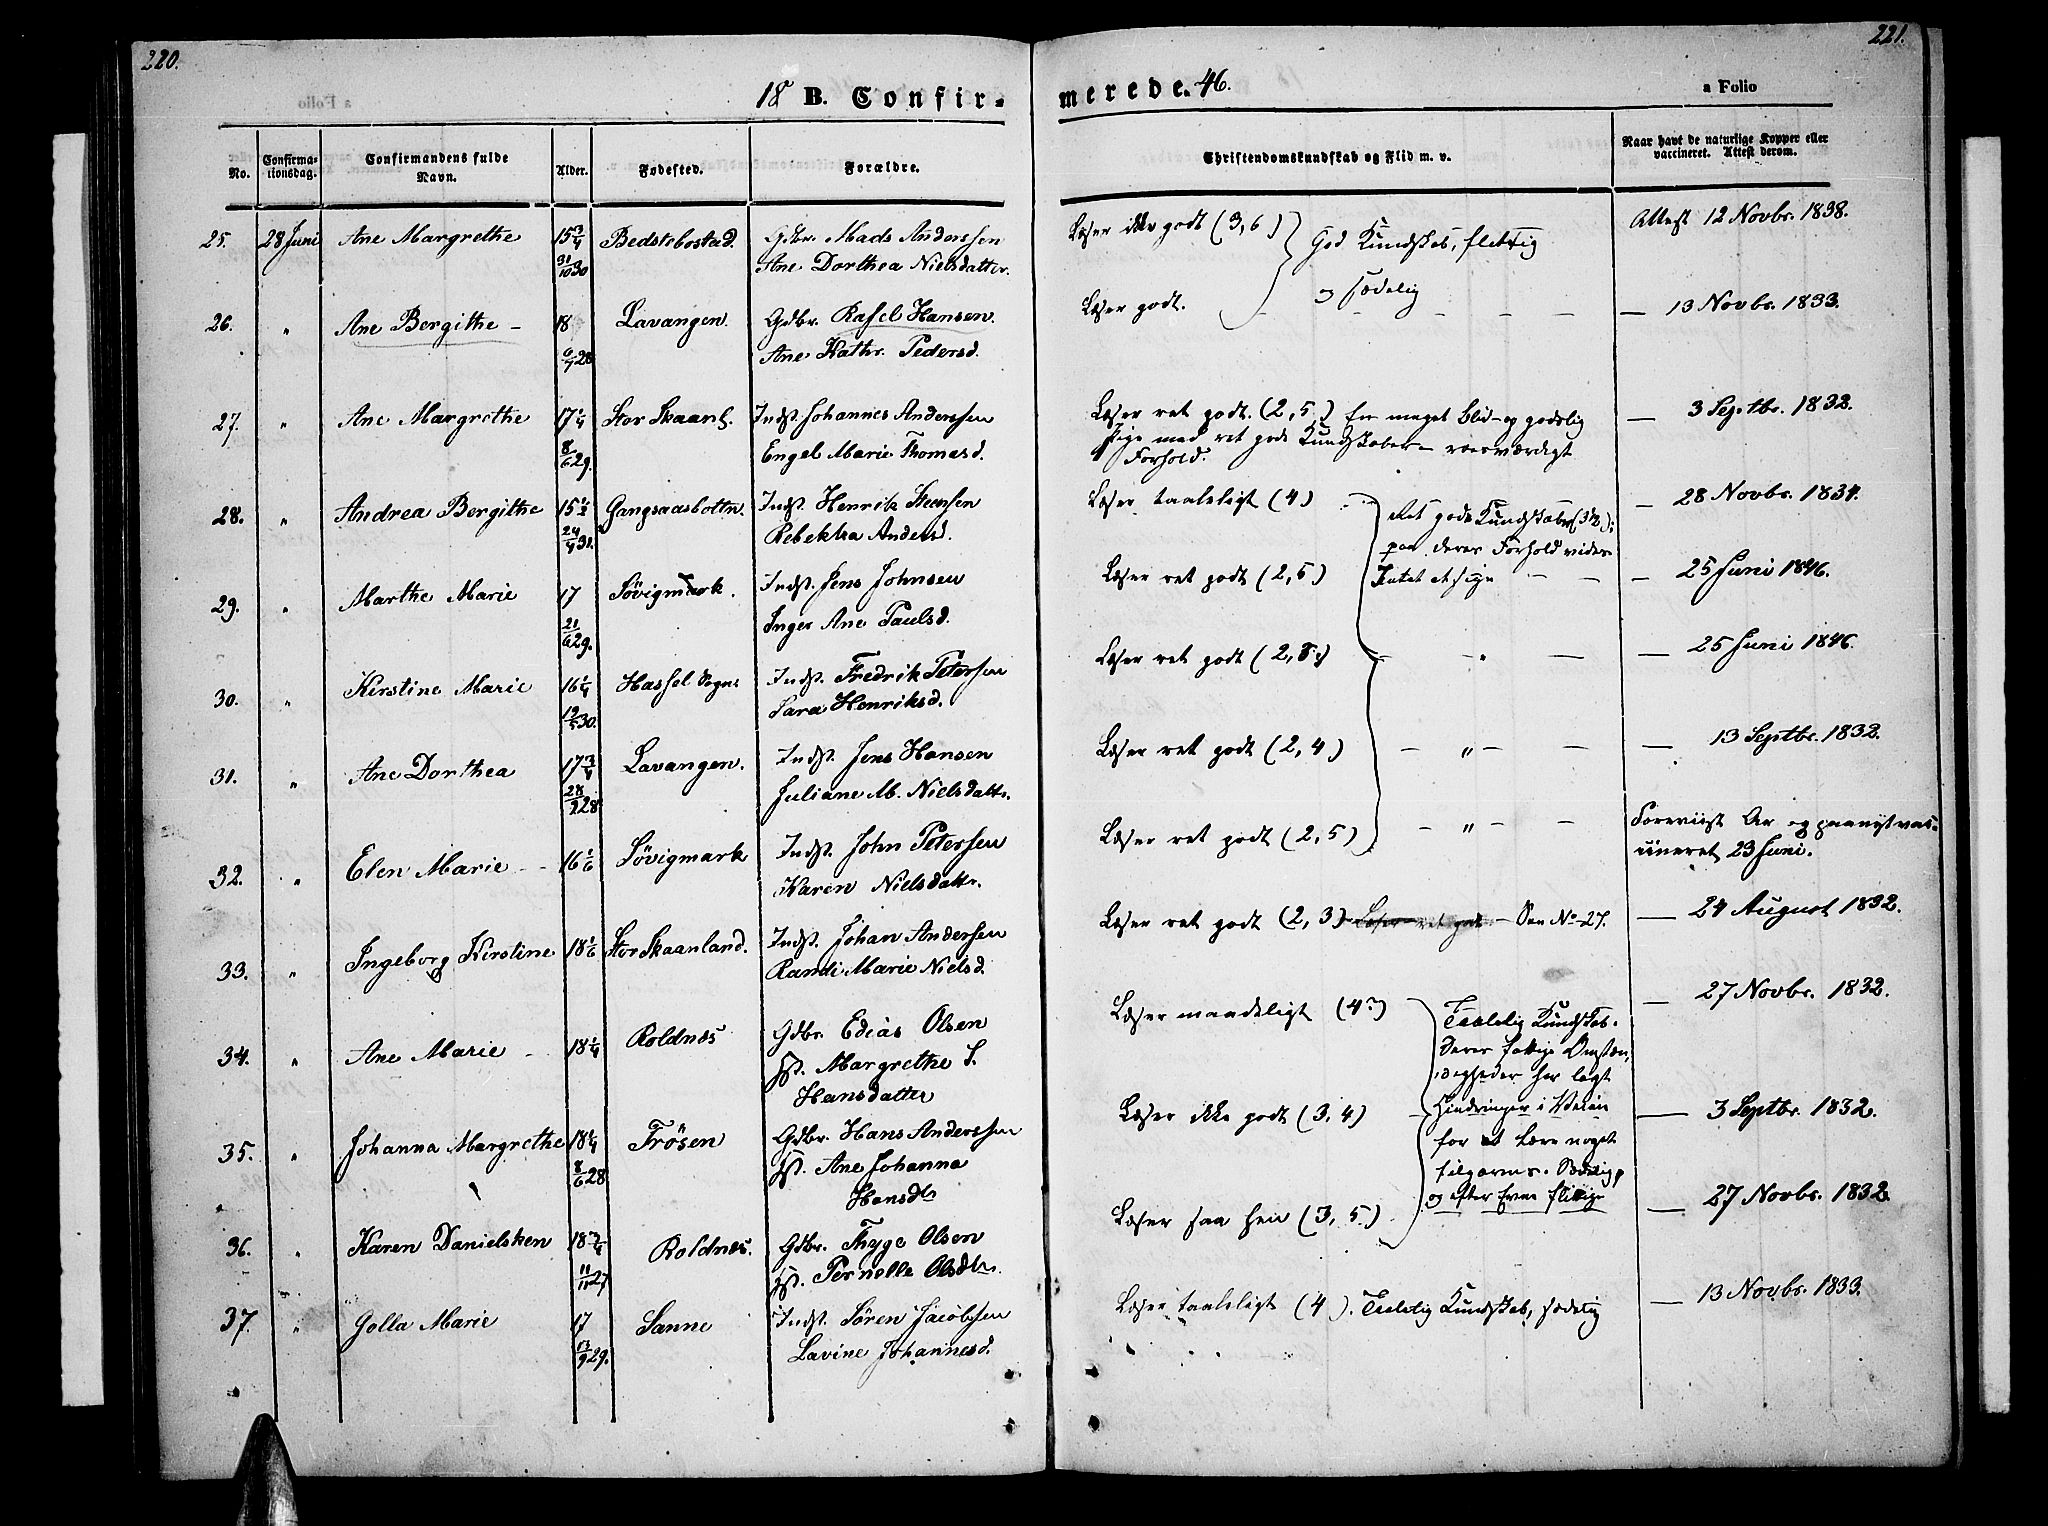 220.
221.
18 B. Confir-
merede. 46.
a Folio
No.
Confirma-
tionsdag.
Confirmandens fulde
Navn.
Alder.
Fødested.
Forældre.
Christendomskundskab og Flid m. v.
Naar havt de naturlige Kopper eller
vaccineret. Attest derom.
25. 28 Juni Ane Margrethe 15 3/4 Bedstebostad. Gdbr. Mads Anderssen
31/10 30 Ane Dorthea Nielsdatter.
Læser ikke godt (3,6) God Kundskab, flittig
og sædelig
Attest 12 Novbr. 1838.
26. " Ane Bergithe - 18 Lavangen. Gdbr. Rafel Hansen.
6/7 28 Ane Kathr. Pedersd.
Læser godt. - - - - - — 13 Novbr. 1833.
27. " Ane Margrethe 17 1/4 Stor Skaanl. Indst. Johannes Anderssen
8/6 29. Engel Marie Thomasd.
Læser ret godt. (2,5.) En meget blid- og godslig
Pige med ret gode Kundskaber - roesværdigt
Forhold.
— 3 Septbr. 1832.
28. " Andrea Bergithe 15 1/2 Gangsaasbottn. Indst. Henrik Steensen
24/4 31. Rebekka Andersd.
Læser taaleligt (4) Ret gode Kundskaber (3 1/2);
paa deres Forhold vides
— 28 Novbr. 1834.
29. " Marthe Marie 17 Sövigmark. Indst. Jens Johnsen
21/6 29. Inger Ane Paulsd.
Læser ret godt (2,5) Intet at sige - - — 25 Juni 1846.
30. " Kirstine Marie 16 1/4 Hassel Sogn Indst. Fredrik Petersen
19/5 30. Sara Henriksd.
Læser ret godt (2,8.) - " - — 25 Juni 1846.
31. " Ane Dorthea 17 3/4 Lavangen. Indst. Jens Hansen
28/9 28 Juliane M. Nielsdattr.
Læser ret godt (2,4) - " - - — 13 Septbr. 1832.
32. " Elen Marie - - 16 1/6 Sövigmark Indst. John Petersen
Karen Nielsdattr.
Læser ret godt (2,5) - " - - Foreviist Ar og paanyt vac-
cineret 23 Juni.
33. " Ingeborg Kirstine 18 1/6 Stor Skaanland. Indst. Johan Andersen
Randi Marie Nielsd.
Læser ret godt (2,3) - Læser ret godt - Som No 27. — 24 August 1832.
34. " Ane Marie - 18 1/4 Roldnæs Gdbr. Edias Olsen
Hst. Margrethe S.
Hansdatter
Læser maadeligt (4?) Taalelig Kundskab.
Deres fattige Omstæn-
digheder har lagt
— 27 Novbr. 1832.
35. " Johanna Margrethe 18 1/4 Trösen Gdbr. Hans Anderssen
8/6 28 Hst. Ane Johanna
Hansdtr
Læser ikke godt (3,4) - Hindringer i Veien
for at lære noget
tilgavns. Sædelig,
og efter Evne flittige
— 3 Septbr. 1832.
36. " Karen Danielsken 18 3/4 Roldnæs. Gdbr. Thyge Olsen
11/11 27 Hst. Pernelle Olsdtr.
Læser saa hen (3,5.) — 27 Novbr. 1832.
37. " Golla Marie 17 Sanne Indst. Sören Jacobsen
13/9 29. Lavine Johannesd.
Læser taaleligt (4). Taalelig Kundskab, sædelig — 13 Novbr. 1833.